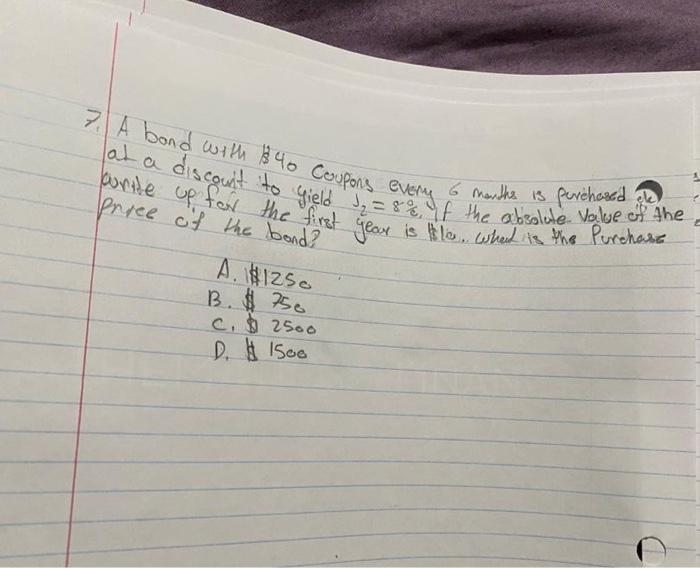 7. A bond with $40 Coupons every 6 months is purchased
at a discount to yield J2 = 8%. If the absolute value of the
write up for the first year is $10.. what is the Purchase
price of the bond?
A. $1250
B. $ 750
C. $ 2500
D. $ 1500